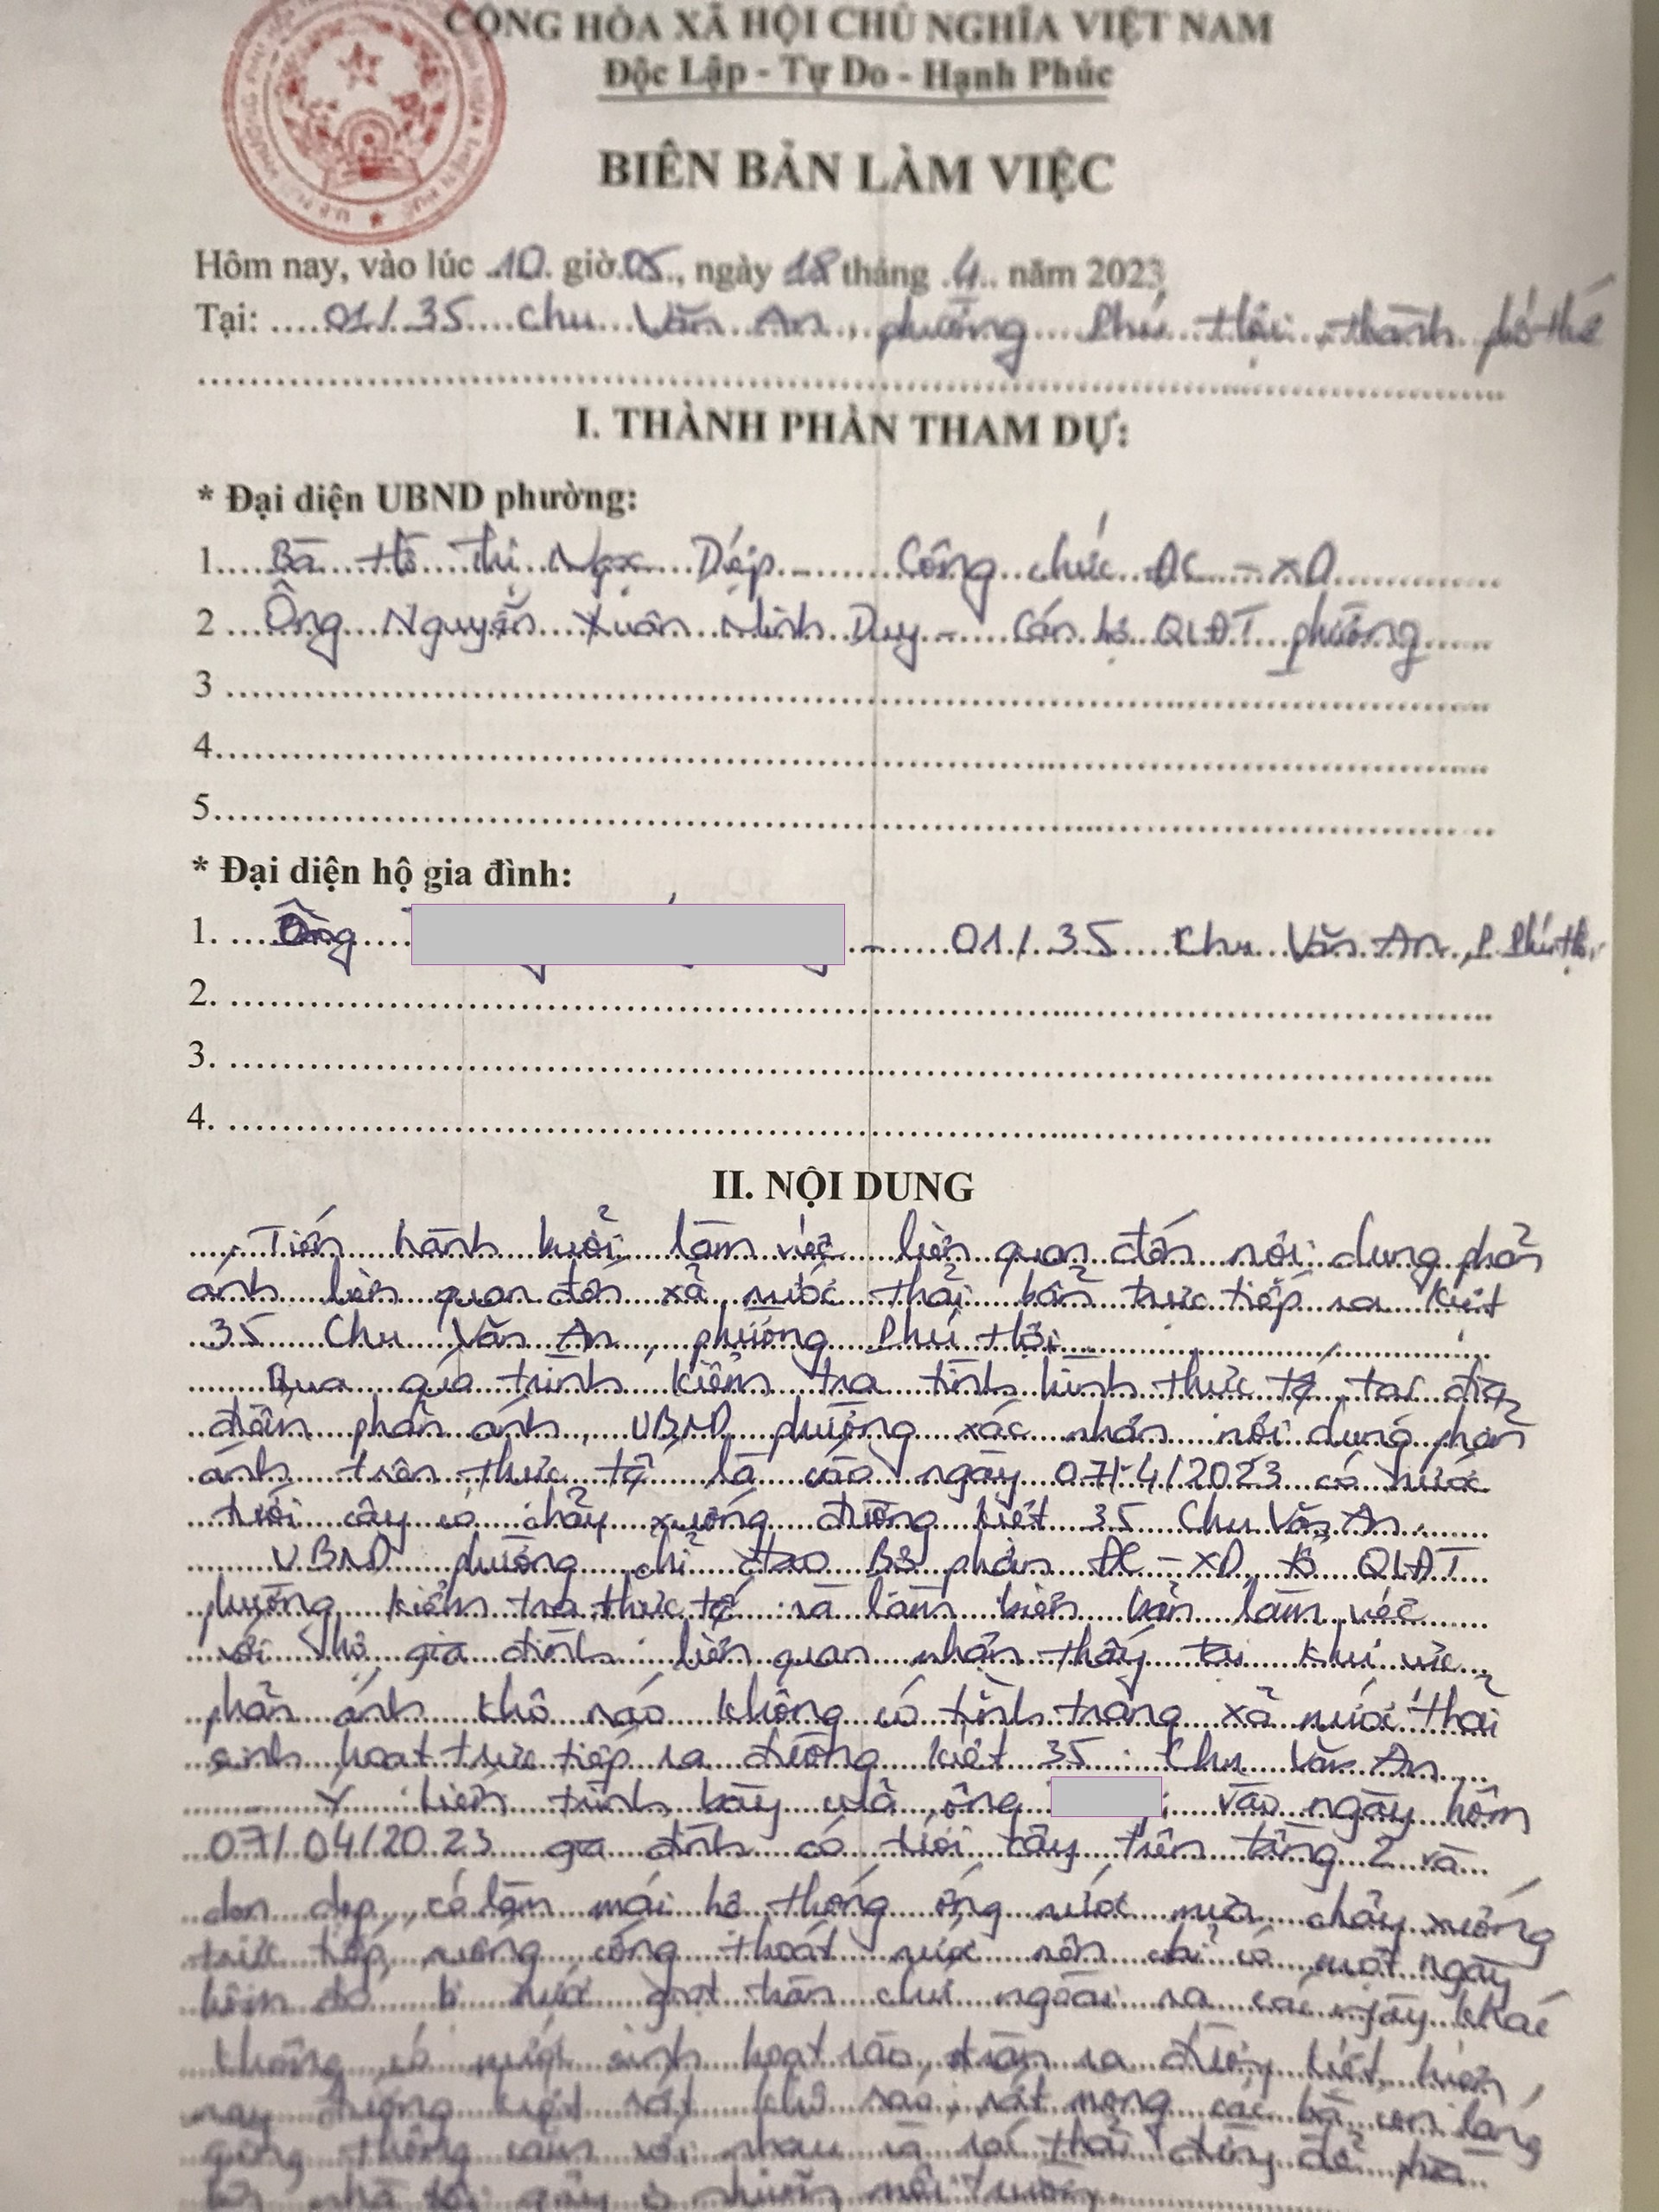 CỘNG HÒA XÃ HỘI CHỦ NGHĨA VIỆT NAM
Độc Lập - Tự Do - Hạnh Phúc
BIÊN BẢN LÀM VIỆC
Hôm nay, vào lúc 10 giờ 05, ngày 18 tháng 4 năm 2023
Tại: 01/35 Chu Văn An, phường Phú Hội, thành phố Huế
I. THÀNH PHẦN THAM DỰ:
* Đại diện UBND phường:
1. Bà Hồ Thị Ngọc Diép - Công chức ĐC - XD
2 Ông Nguyễn Xuân Minh Duy - Cán bộ QLĐT phường
3
4
5
* Đại diện hộ gia đình:
1. Ông - 01/35 Chu Văn An, P. Phú Hội
2.
3.
4.
II. NỘI DUNG
Tiến hành buổi làm việc liên quan đến nội dung phản
ánh liên quan đến xả nước thải bẩn trực tiếp ra kiệt
35 Chu Văn An, phường Phú Hội.
Qua quá trình kiểm tra tình hình thực tế tại địa
điểm phản ánh, UBND phường xác nhận nội dung phản
ánh trên thực tế là vào ngày 07/4/2023 có nước
tưới cây có chảy xuống đường kiệt 35 Chu Văn An.
UBND phường chỉ đạo Bộ phận ĐC - XD, tổ QLĐT
phường kiểm tra thực tế và làm biên bản làm việc
với hộ gia đình liên quan nhận thấy tại khu vực
phản ánh khô ráo không có tình trạng xả nước thải
sinh hoạt trực tiếp ra đường kiệt 35 Chu Văn An
Ý kiến trình bày của ông vào ngày hôm
07/04/2023 gia đình có tưới cây trên tầng 2 và
dọn dẹp, có làm mới hệ thống ống nước mưa chảy xuống
trực tiếp xuống cống thoát nước nên chỉ có một ngày
hôm đó bị nước giọt bắn chứ ngoài ra các ngày khác
không có nước sinh hoạt nào tràn ra đường kiệt, hiện
nay đường kiệt rất khô ráo, rất mong các bà con láng
giềng thông cảm với nhau và thái
nhà tôi gây ô nhiễm môi trường